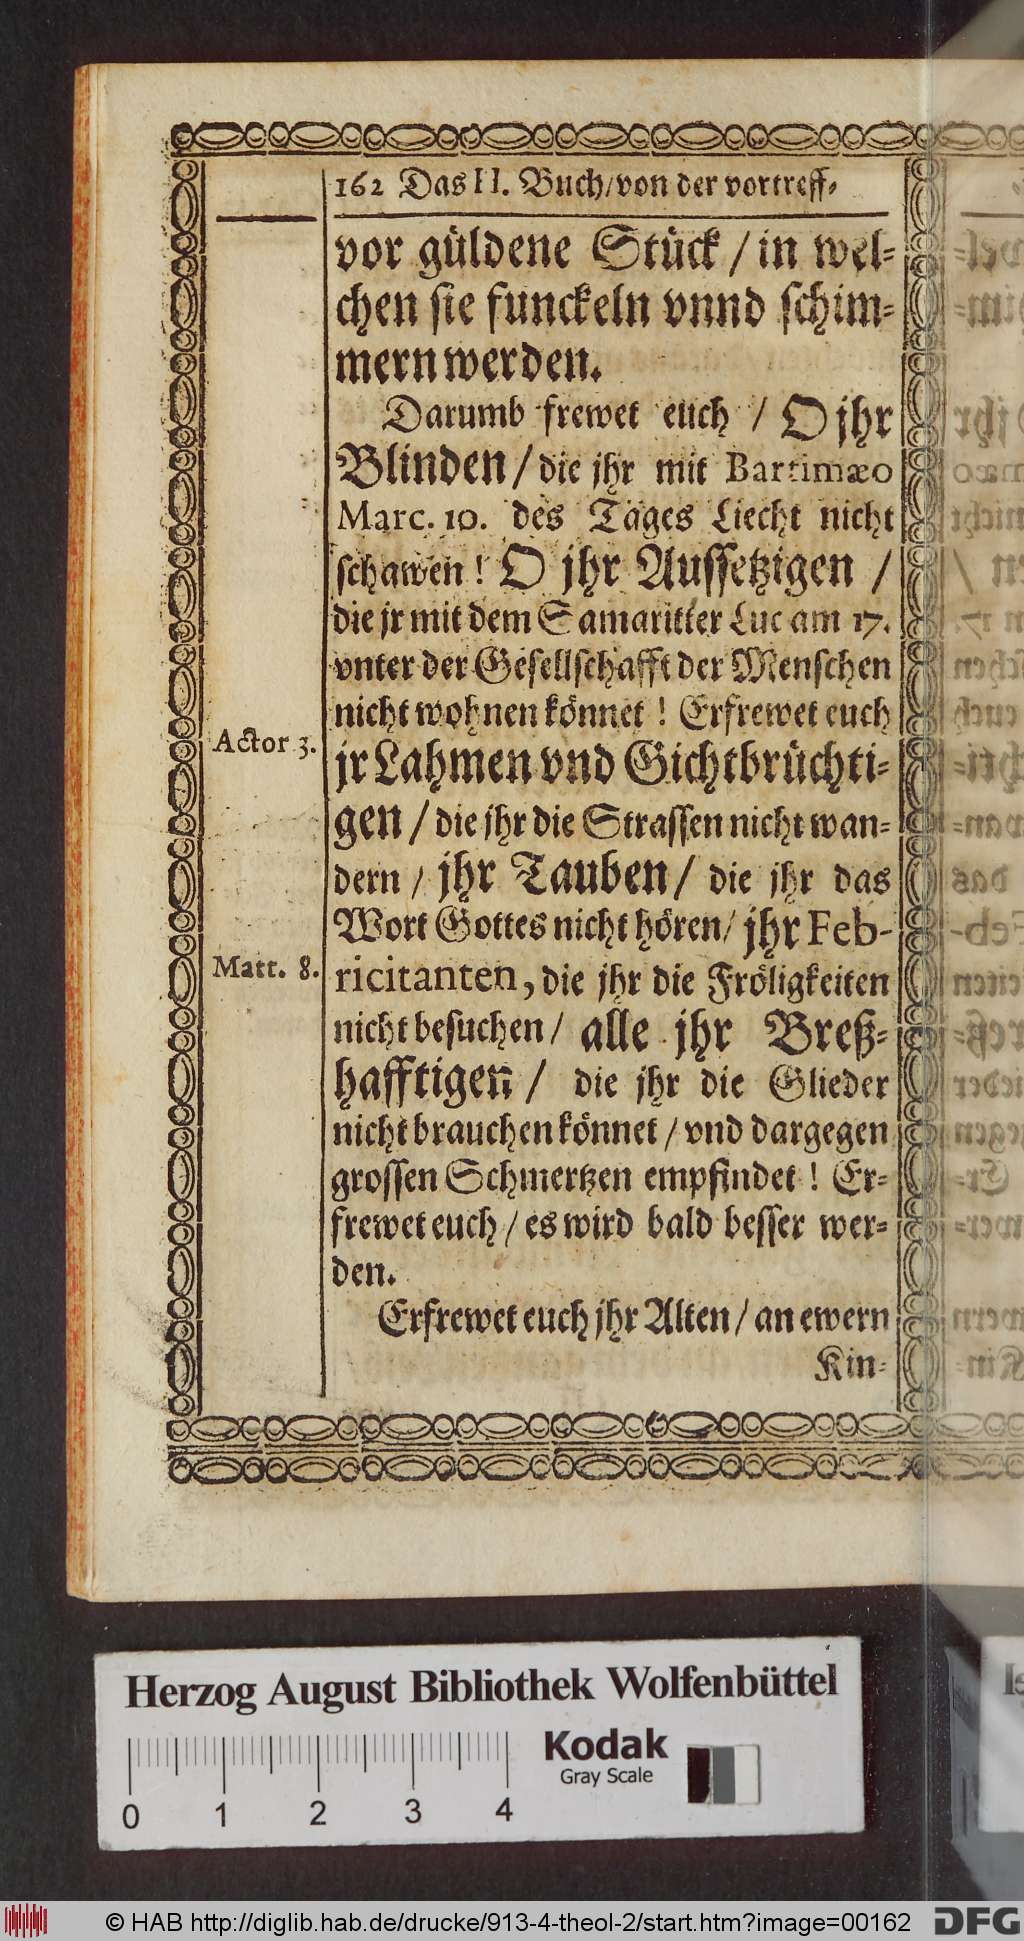 162 Das II. Buch/von der vortreff-
vor güldene Stück / in wel-
chen sie funckeln vnnd schim-
mern werden.
Darumb frewet euch / O jhr
Blinden / die jhr mit Bartimæo
Marc. 10. des Tages Liecht nicht
schawen! O jhr Aussetzigen /
die jr mit dem Samaritter Luc am 17.
vnter der Gesellschafft der Menschen
nicht wohnen könnet! Erfrewet euch
Actor 3.
jr Lahmen vnd Gichtbrüchti-
gen / die jhr die Strassen nicht wan-
dern / jhr Tauben / die jhr das
Wort Gottes nicht hören/ jhr Feb-
Matt. 8.
ricitanten, die jhr die Fröligkeiten
nicht besuchen / alle jhr Breß-
hafftigen / die jhr die Glieder
nicht brauchen könnet / vnd dargegen
grossen Schmertzen empfindet! Er-
frewet euch / es wird bald besser wer-
den.
Erfrewet euch jhr Alten / an ewern
Kin-
Herzog August Bibliothek Wolfenbüttel
Kodak
Gray Scale
0 1 2 3 4
© HAB http://diglib.hab.de/drucke/913-4-theol-2/start.htm?image=00162
DFG